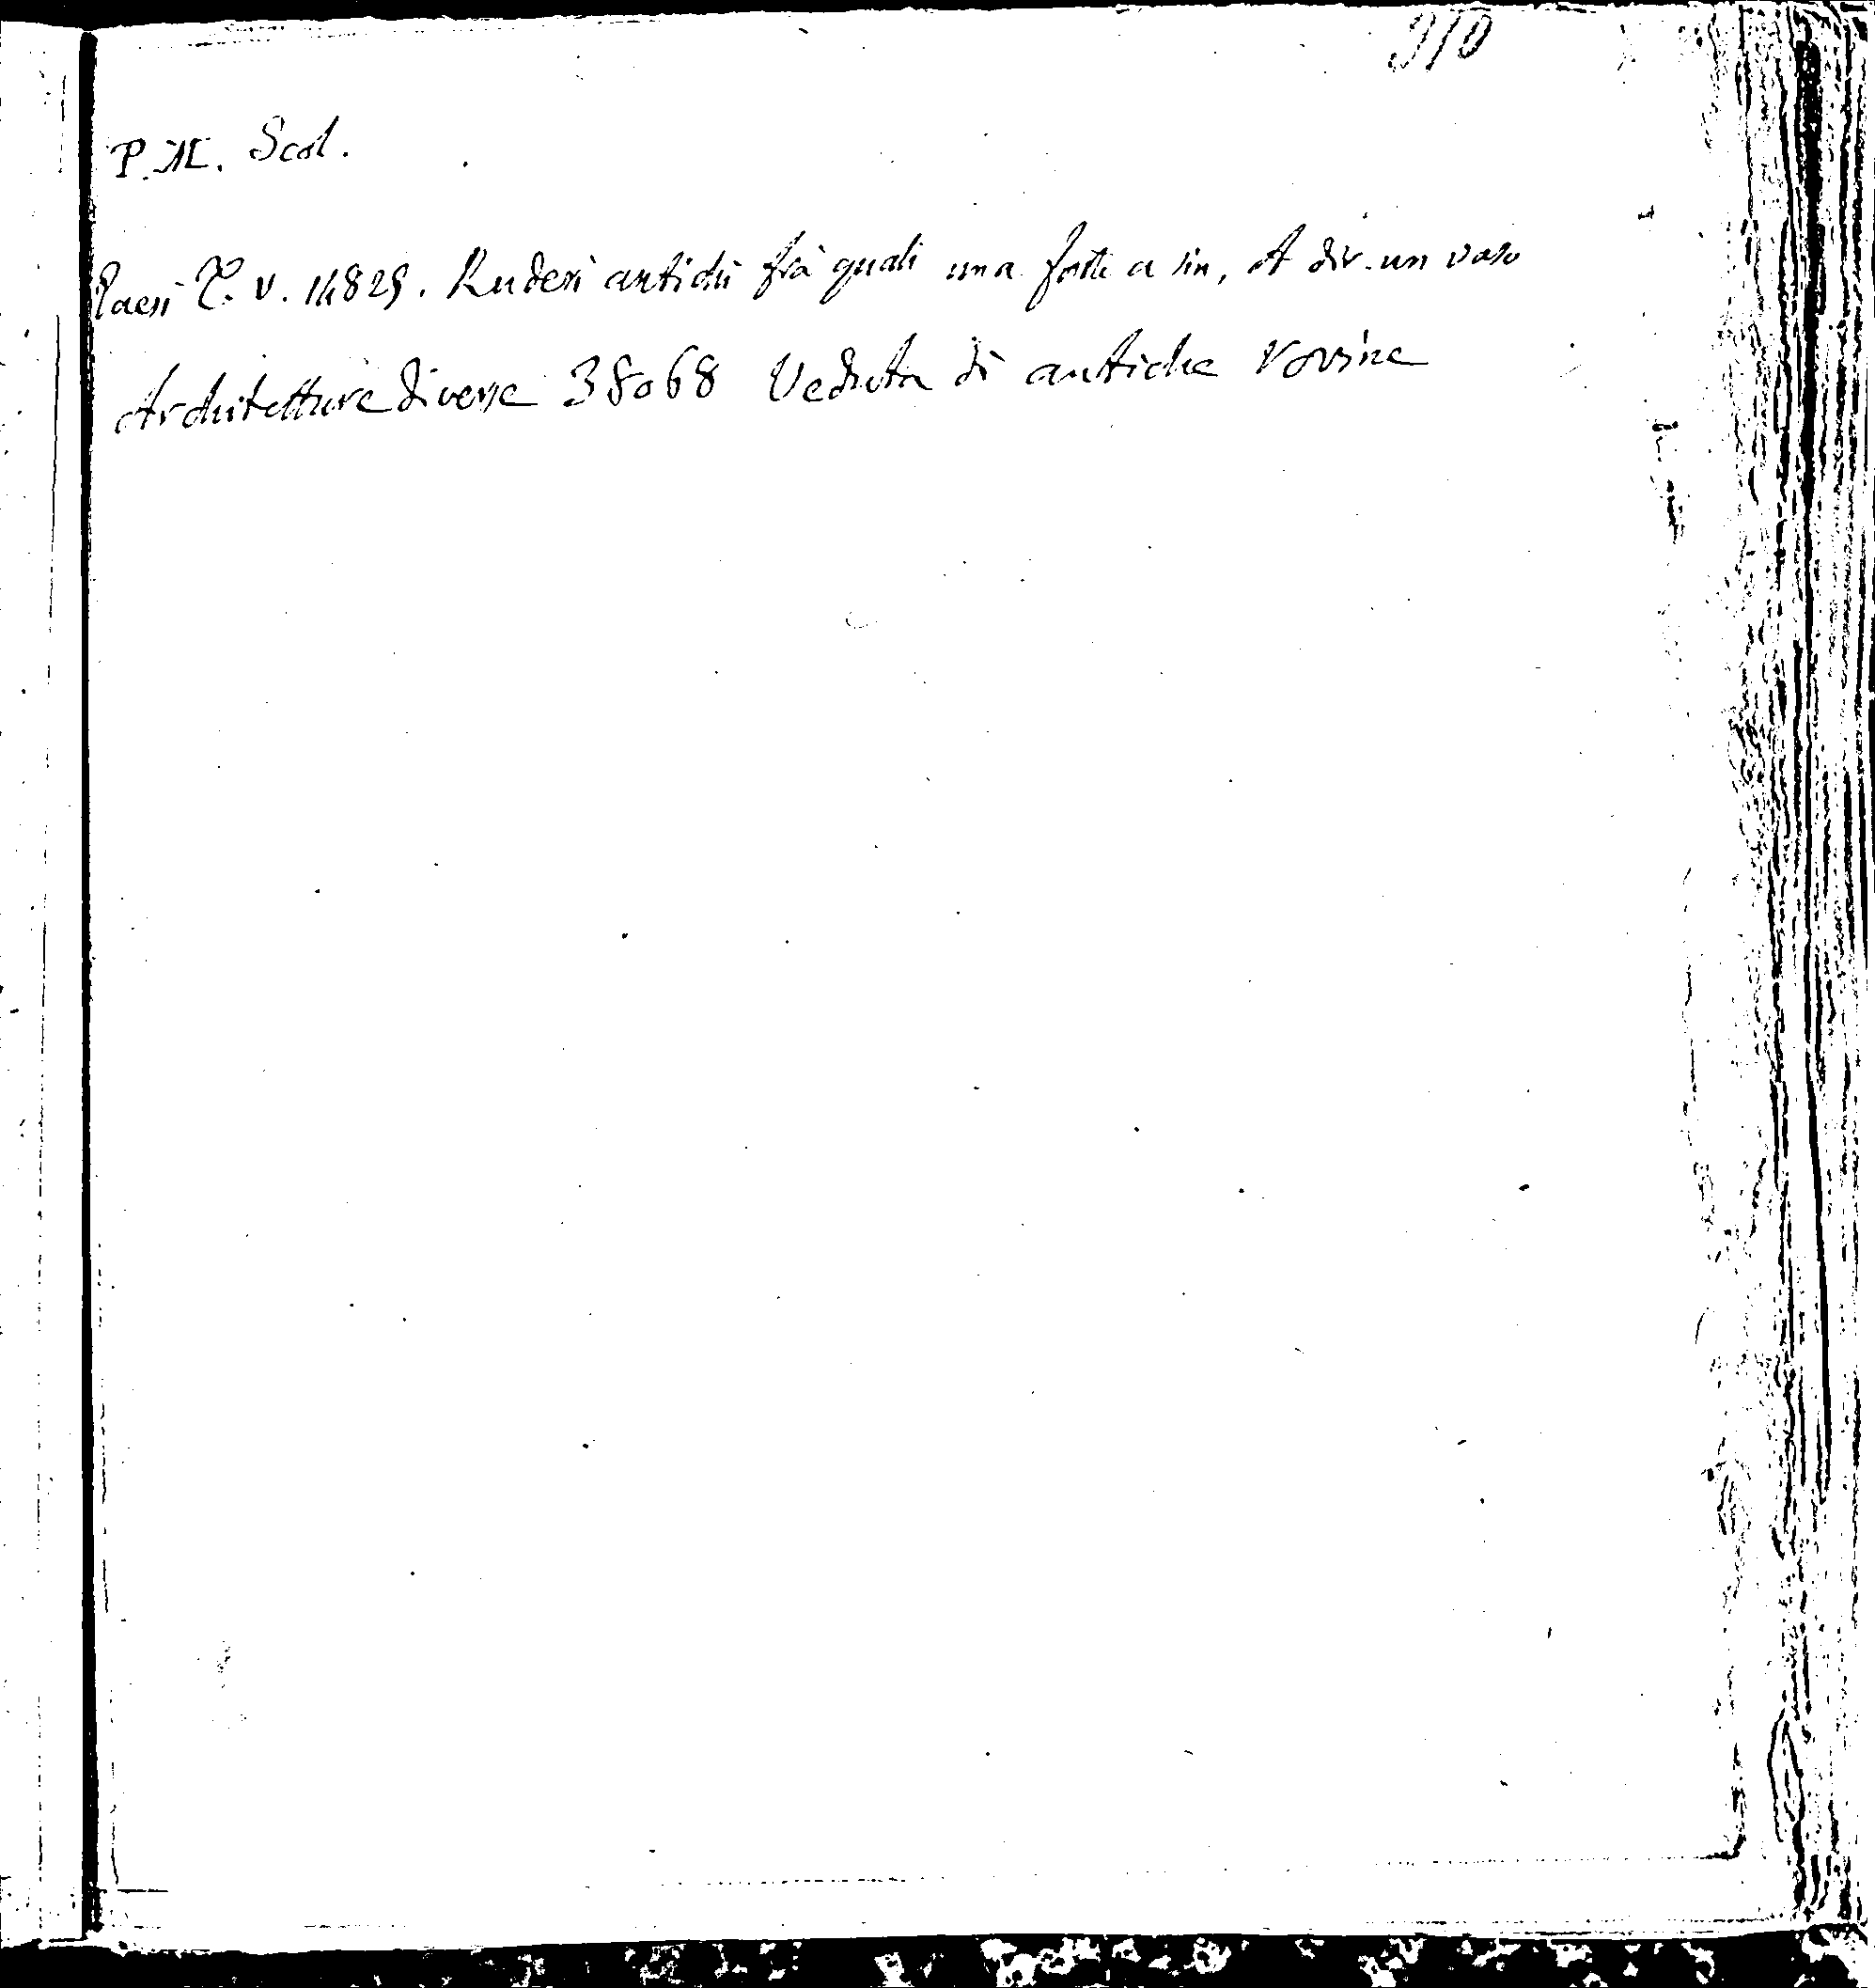 910
P. M. Scol.
Paesi T. V. 14829. Ruderi antichi fra quali una fonte a sin, A dir. un vaso
Architetture diverse 38068 Veduta di antiche rovine